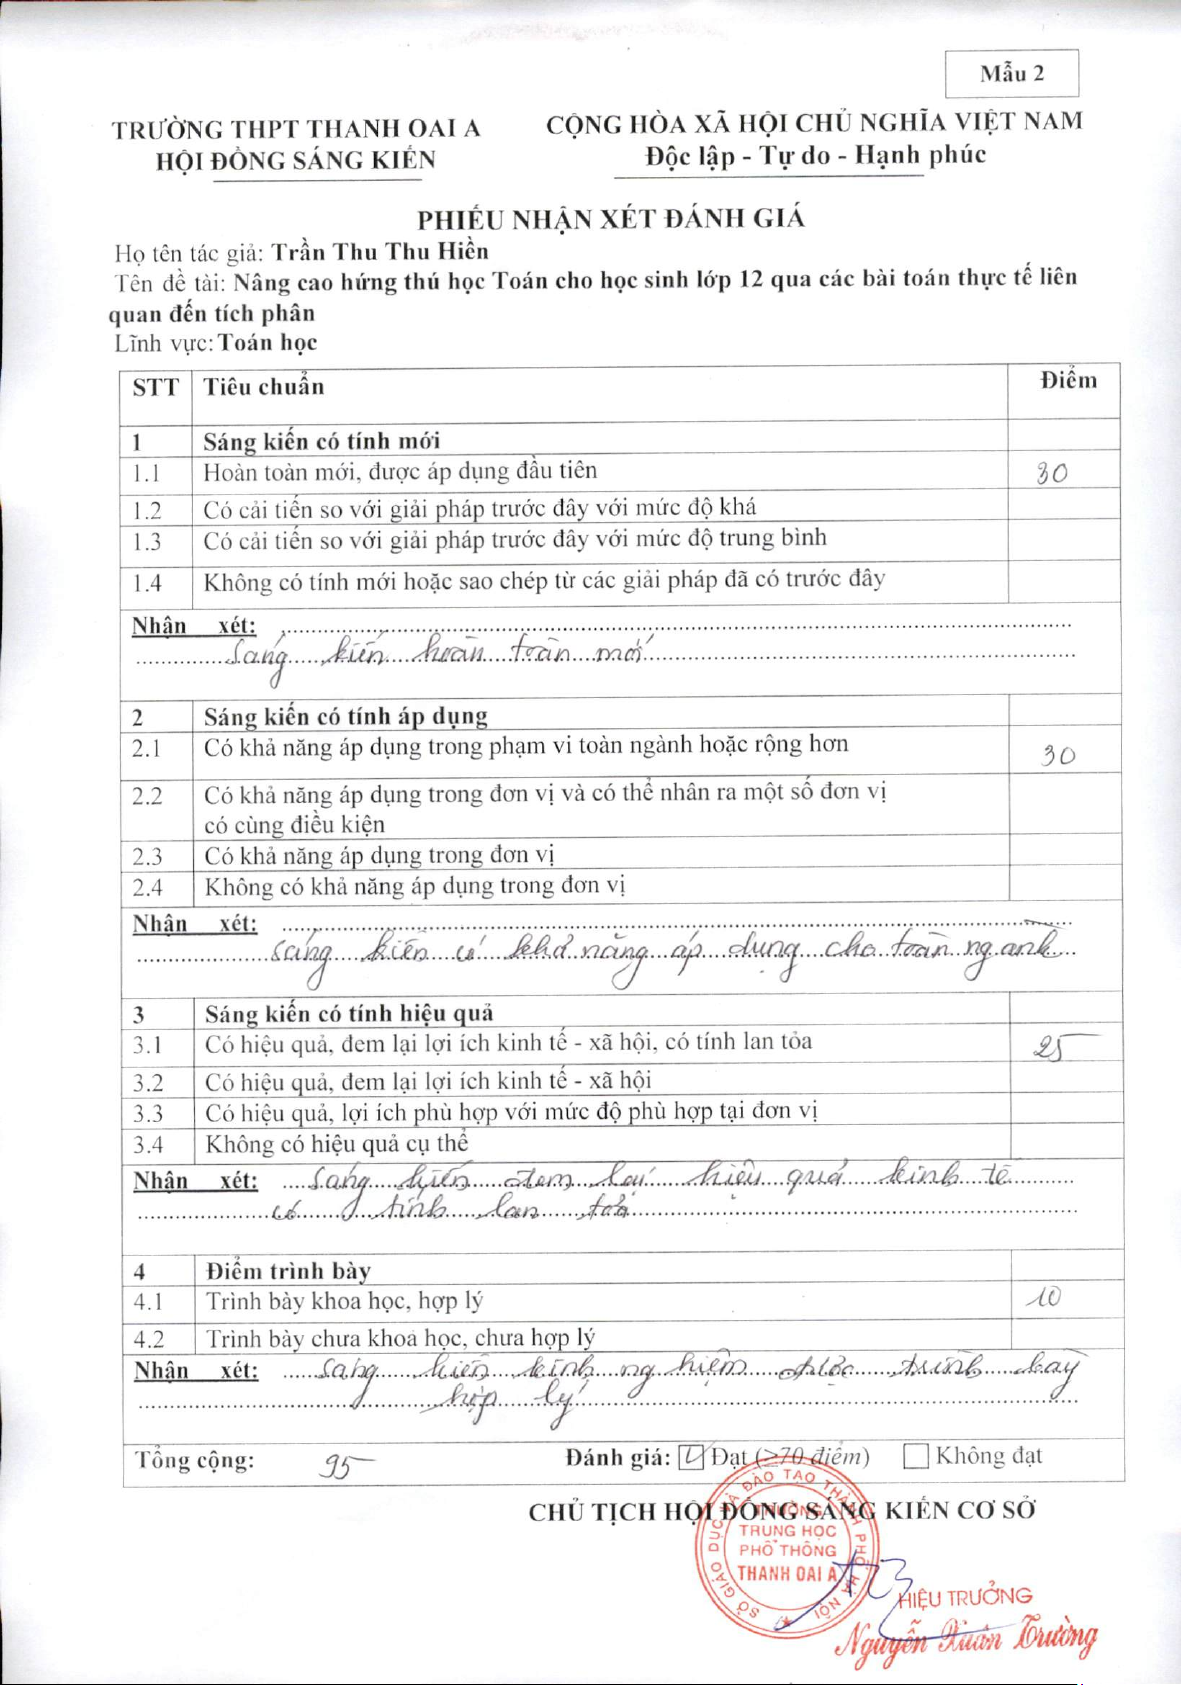 Mẫu 2
TRƯỜNG THPT THANH OAI A
HỘI ĐỒNG SÁNG KIẾN
CỘNG HÒA XÃ HỘI CHỦ NGHĨA VIỆT NAM
Độc lập - Tự do - Hạnh phúc
PHIẾU NHẬN XÉT ĐÁNH GIÁ
Họ tên tác giả: Trần Thu Thu Hiền
Tên đề tài: Nâng cao hứng thú học Toán cho học sinh lớp 12 qua các bài toán thực tế liên
quan đến tích phân
Lĩnh vực: Toán học
STT Tiêu chuẩn Điểm
1 Sáng kiến có tính mới
1.1 Hoàn toàn mới, được áp dụng đầu tiên 30
1.2 Có cải tiến so với giải pháp trước đây với mức độ khá
1.3 Có cải tiến so với giải pháp trước đây với mức độ trung bình
1.4 Không có tính mới hoặc sao chép từ các giải pháp đã có trước đây
Nhận xét:
Sáng kiến hoàn toàn mới
2 Sáng kiến có tính áp dụng
2.1 Có khả năng áp dụng trong phạm vi toàn ngành hoặc rộng hơn 30
2.2 Có khả năng áp dụng trong đơn vị và có thể nhân ra một số đơn vị
có cùng điều kiện
2.3 Có khả năng áp dụng trong đơn vị
2.4 Không có khả năng áp dụng trong đơn vị
Nhận xét:
Sáng kiến có khả năng áp dụng cho toàn ngành
3 Sáng kiến có tính hiệu quả
3.1 Có hiệu quả, đem lại lợi ích kinh tế - xã hội, có tính lan tỏa 25
3.2 Có hiệu quả, đem lại lợi ích kinh tế - xã hội
3.3 Có hiệu quả, lợi ích phù hợp với mức độ phù hợp tại đơn vị
3.4 Không có hiệu quả cụ thể
Nhận xét: Sáng kiến đem lại hiệu quả kinh tế
có tính lan tỏa
4 Điểm trình bày
4.1 Trình bày khoa học, hợp lý 10
4.2 Trình bày chưa khoa học, chưa hợp lý
Nhận xét: Sáng kiến kinh nghiệm được trình bày
hợp lý
Tổng cộng: 95 Đánh giá: Đạt (≥70 điểm) Không đạt
CHỦ TỊCH HỘI ĐỒNG SÁNG KIẾN CƠ SỞ
SỞ GIÁO DỤC VÀ ĐÀO TẠO THÀNH PHỐ HÀ NỘI
TRƯỜNG
TRUNG HỌC
PHỔ THÔNG
THANH OAI A
HIỆU TRƯỞNG
Nguyễn Xuân Trường